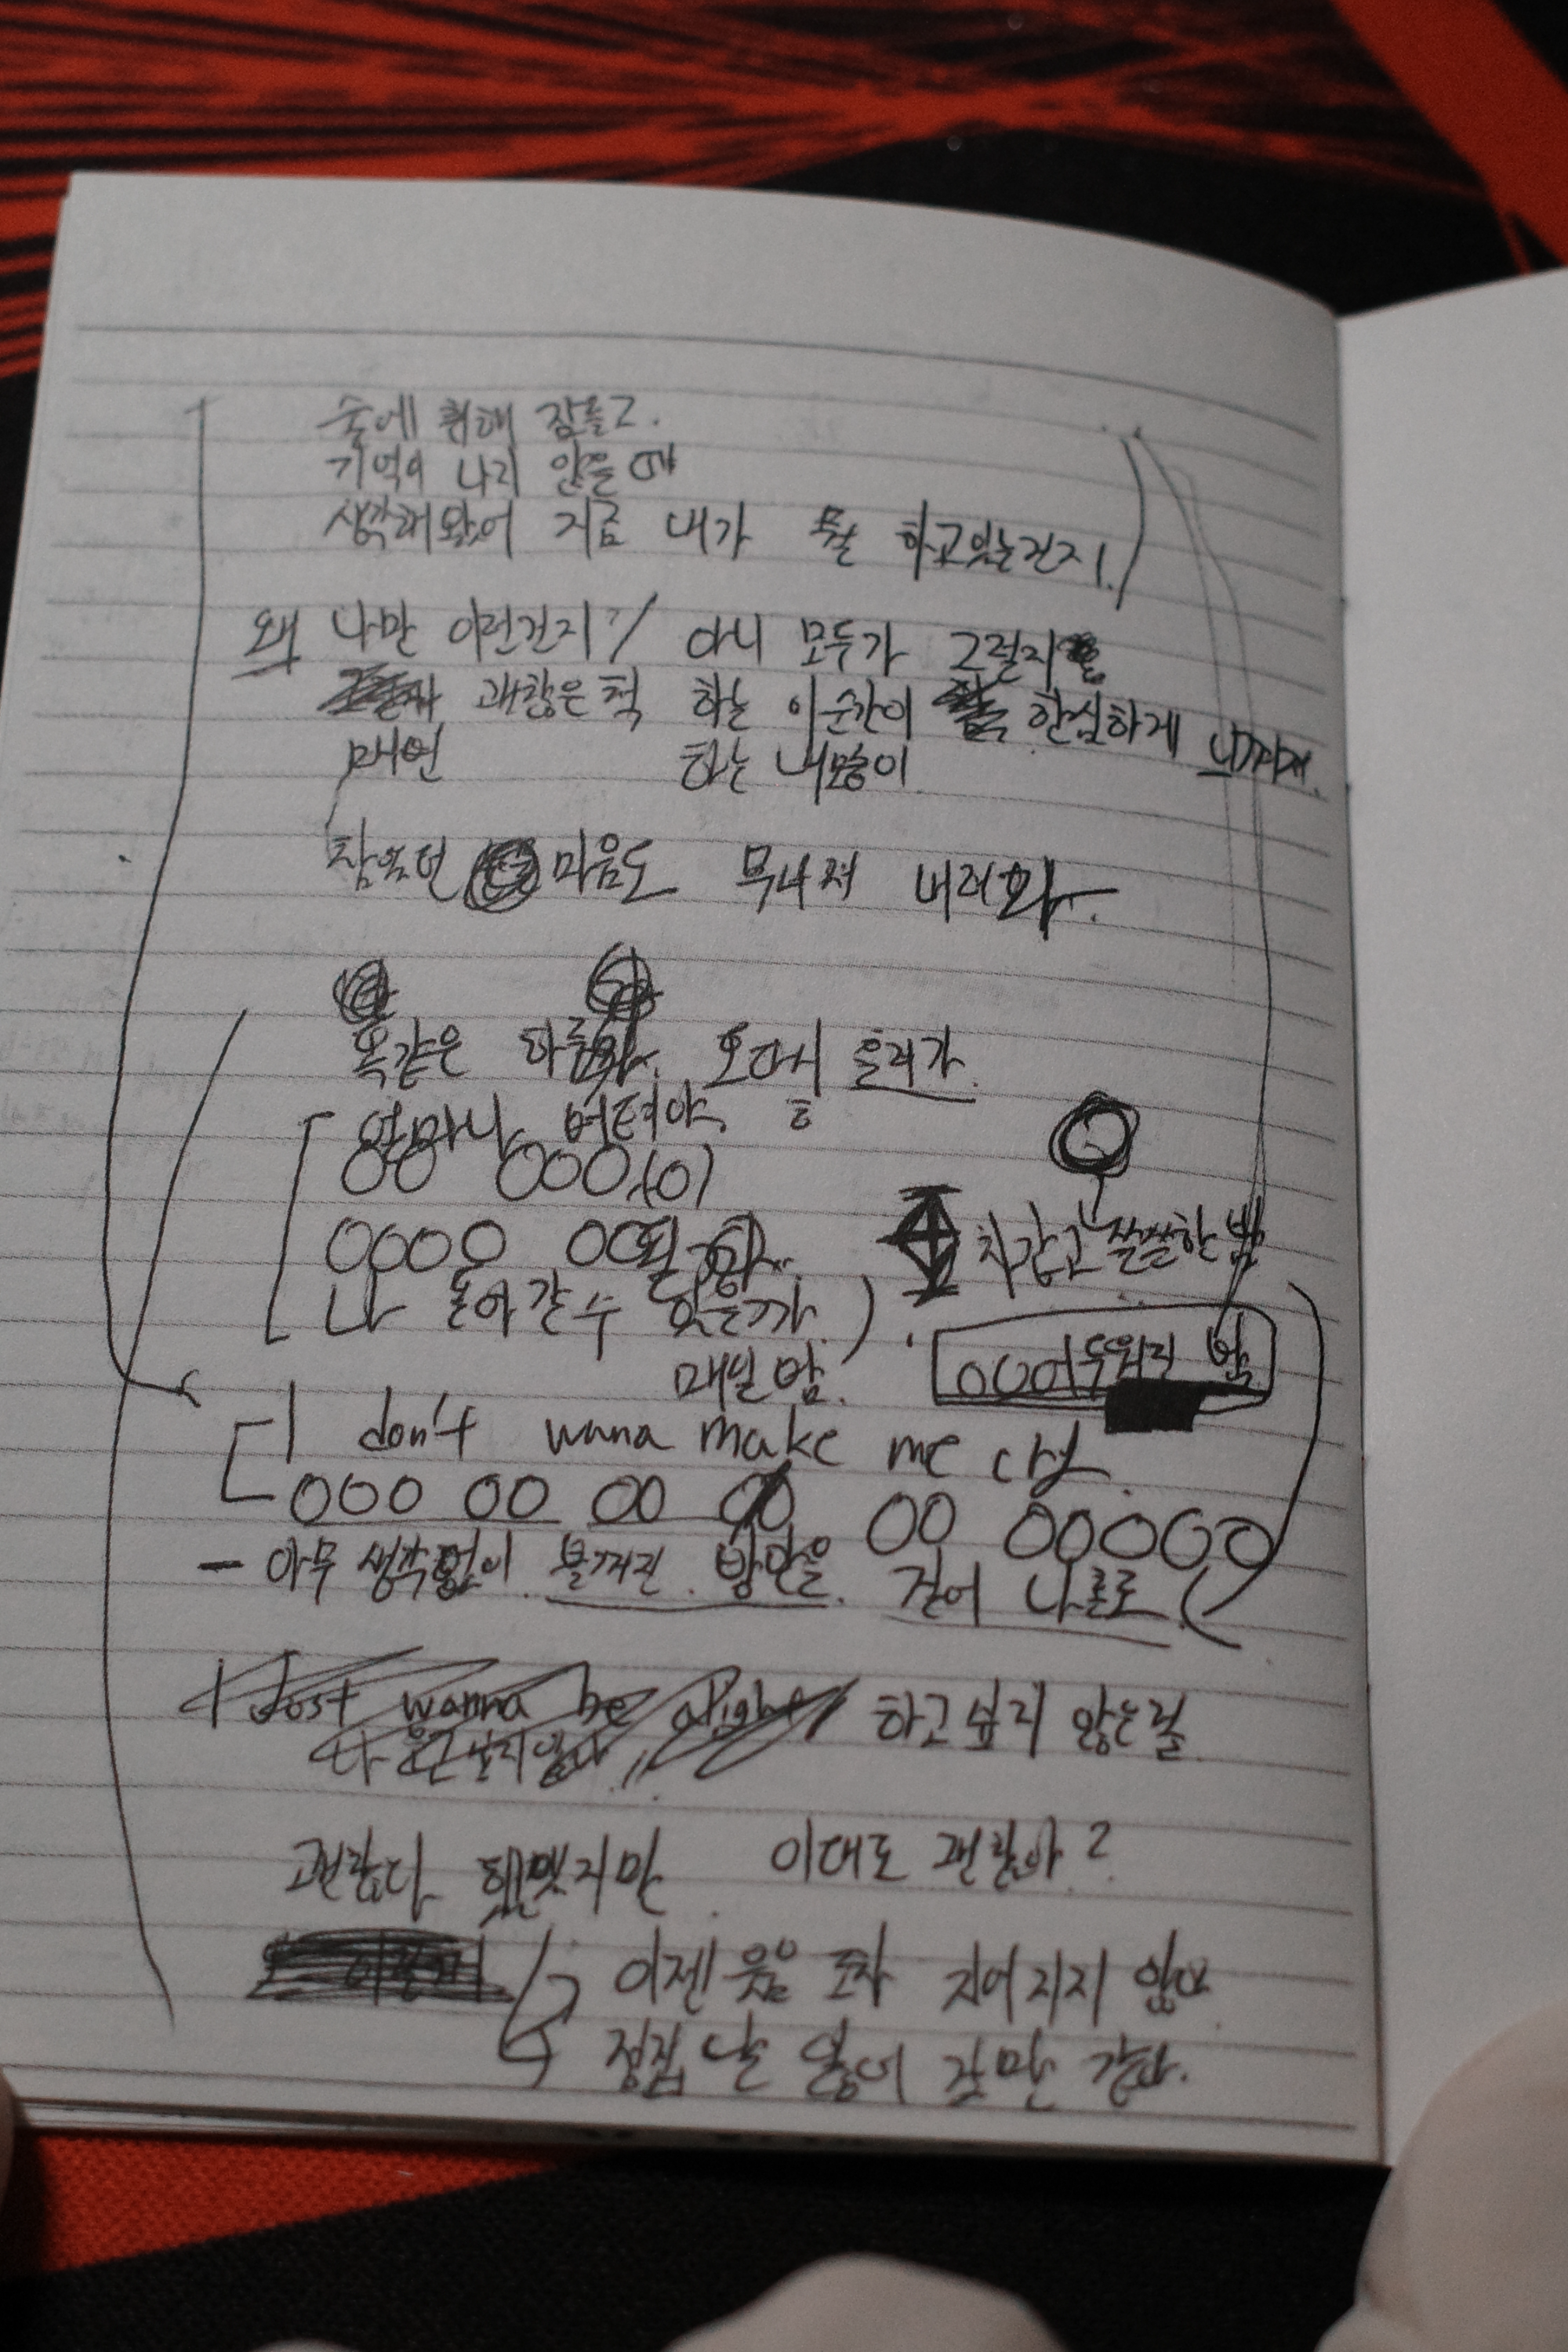 술에 취해 잠들고.
기억이 나지 않을 때
생각해봤어 지금 내가 뭘 하고있는건지.
왜 나만 이런건지? / 아니 모두가 그럴지
괜찮은 척 하는 이순간이 한심하게 느껴져.
매번 하는 내모습이
참았던 마음도 무너져 버려와.
똑같은 하루 오늘이 흘러가.
얼마나 버텨야.
OO OOO(O)
OOOO OO
차갑고 쓸쓸한 밤
나 돌아갈 수 있을까.)
OOO어두워진 밤
매일 밤.
I don't wana make me cry.
OOO OO OO OO OO OOOOO
- 아무 생각없이 불꺼진 방안을. 걸어 나홀로
I Just wanna be alight 하고싶지 않은걸
괜찮다 했지만 이대로 괜찮아?
이젠 웃음 조차 지어지지 않아
정집 날 잃어 갈 만 같아.